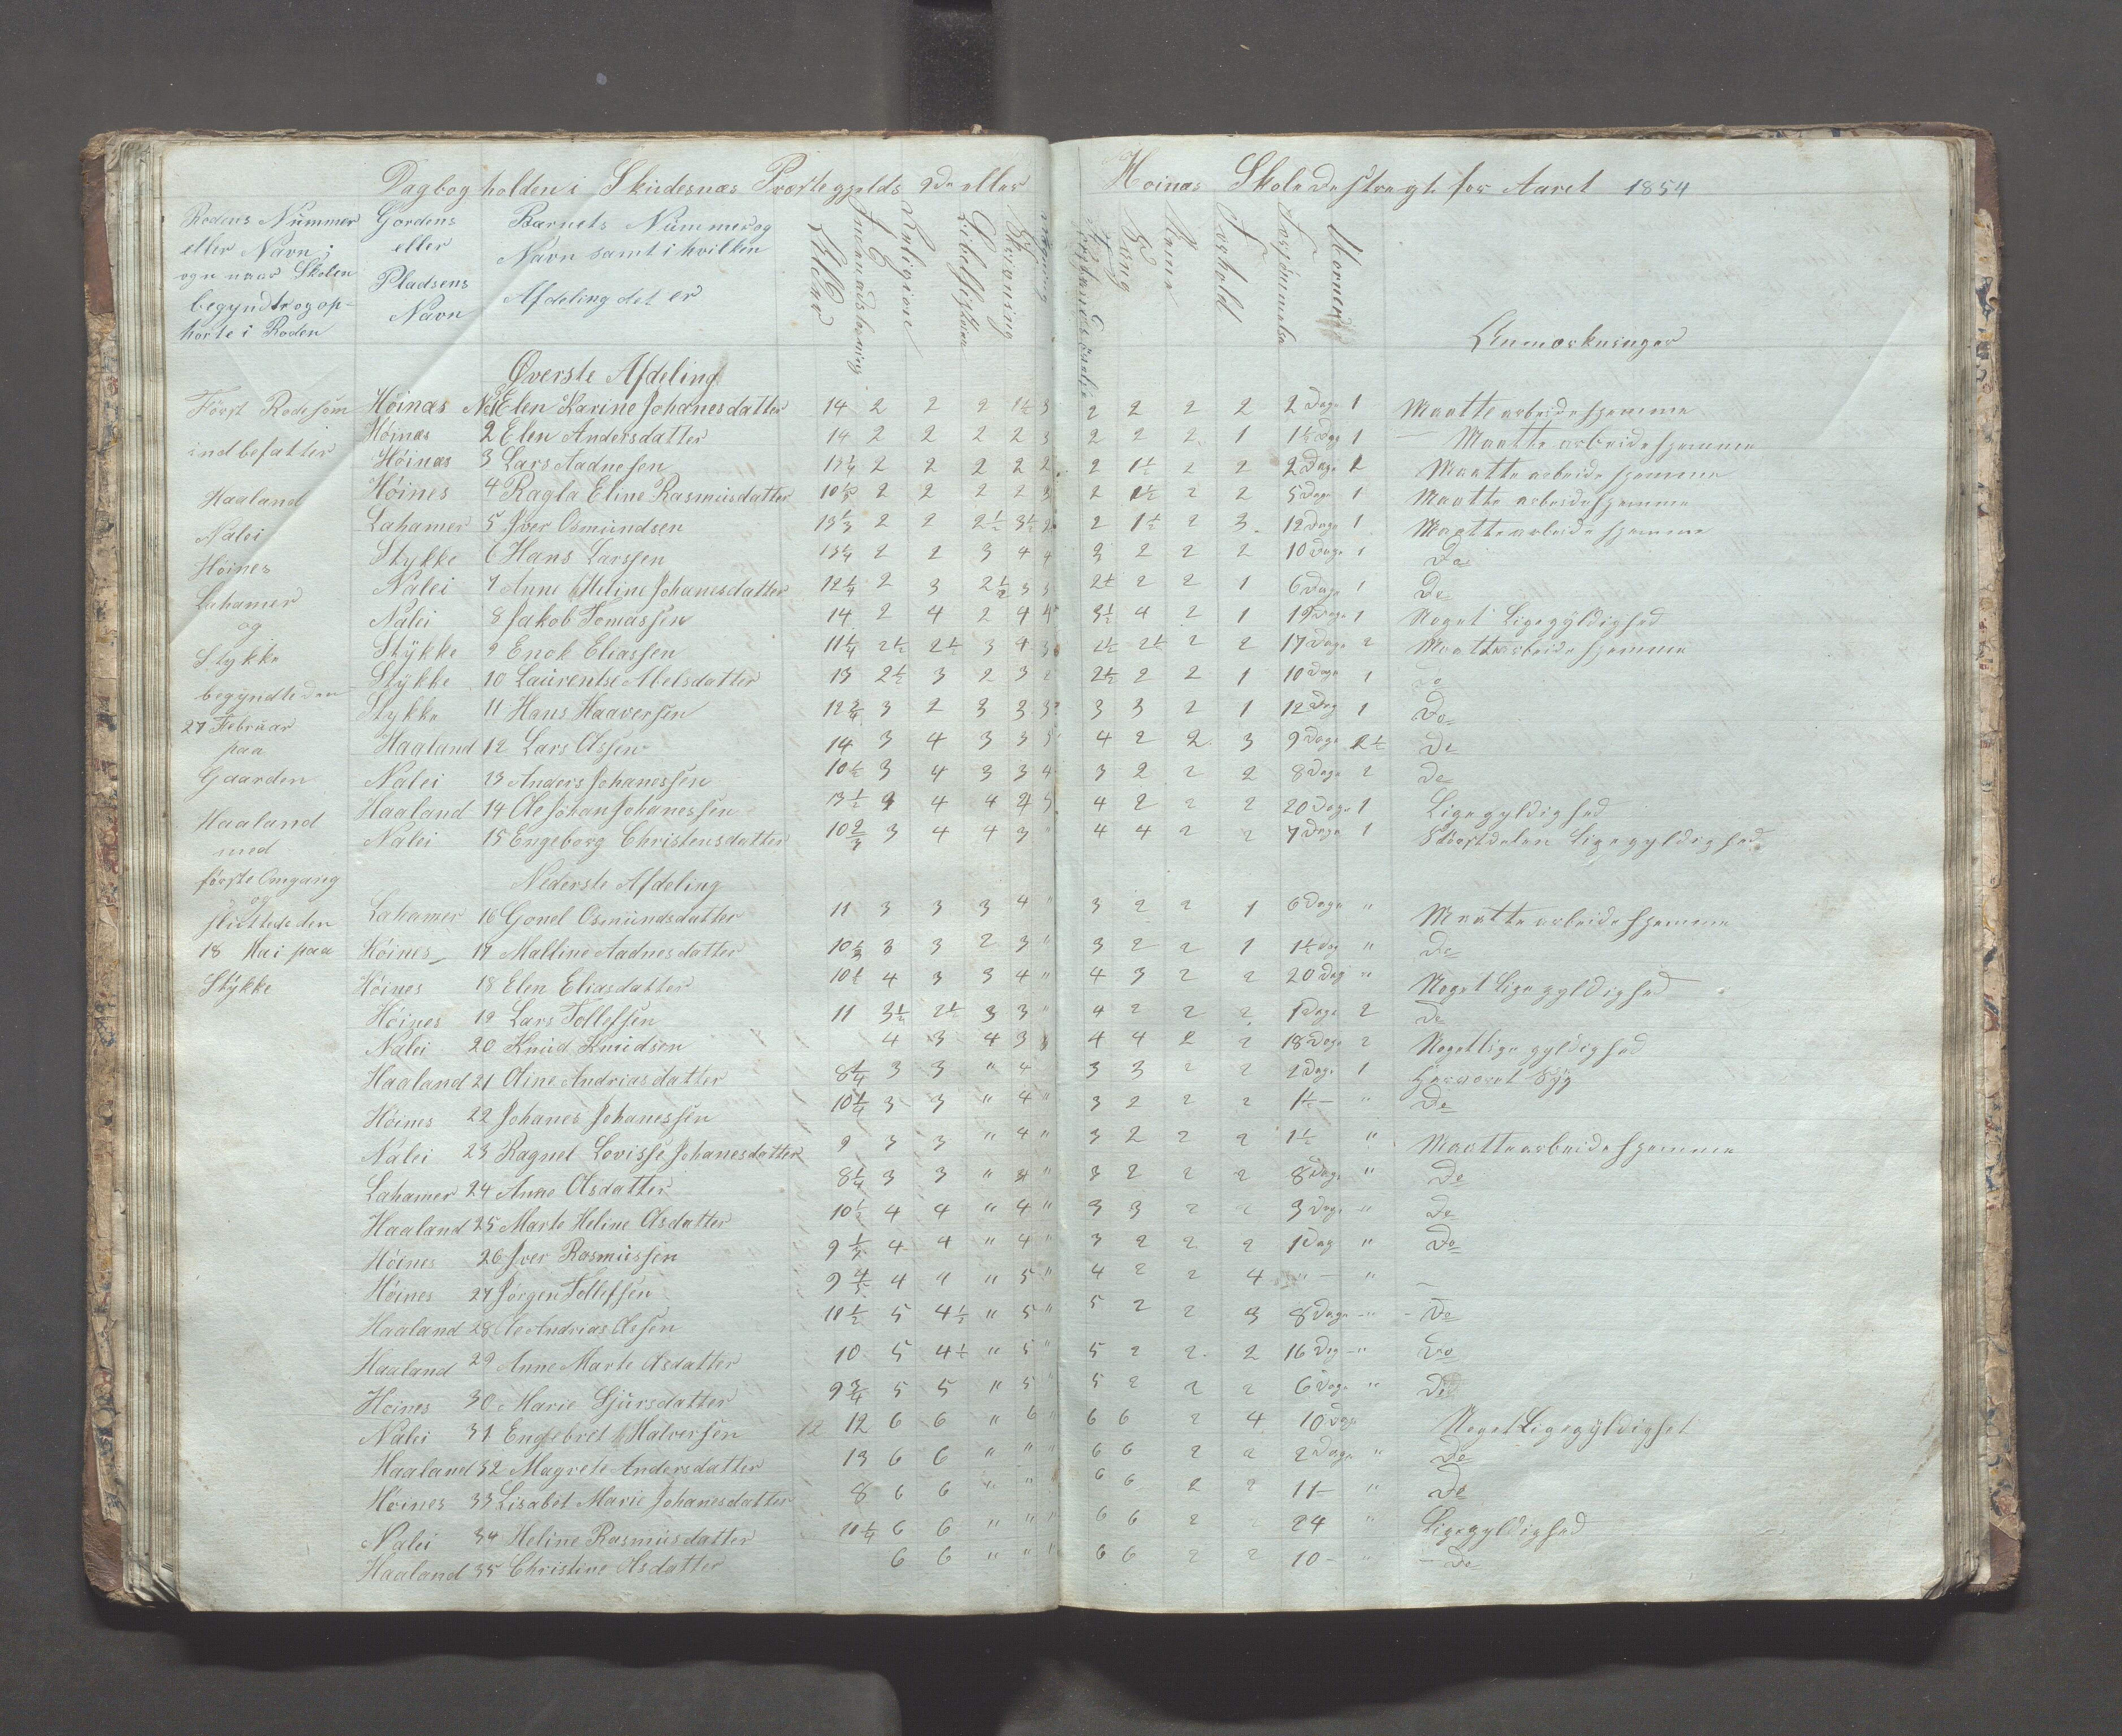 Dagbog holden i Skudesnæs Præstegjelds 2de eller Hoinæs Skoledistregt for Aaret 1854
Rodens Nummer
eller Navn;
ogn naar Skolen
begyndte og op-
hørte i Roden
Gordens
eller
Pladsens
Navn
Barnets Nummer og
Navn samt i hvilken
Afdeling det er
Alder
Indenadslæsning
Religion
Bibelhistorie
Skrivning
Regning
Forstandsøvelse
Sang
Nemme
Forhold
Forsømmelse
Anmærkninger
Øverste Afdeling
Først Rode som
indbefatter
Haaland
Nalei
Høines
Lahamer
og
Stykke
begyndte den
27 Februar
paa
Gaarden
Haaland
med
første Omgang
og
sluttede den
18 Mai paa
Stykke
Høinæs No 1 Elen Karine Johanesdatter 14 2 2 2 1½ 3 2 2 2 2 2 Dage 1 Maatte arbeide hjemme
Høinæs 2 Elen Andersdatter 14 2 2 2 2 3 2 2 2 1 1½ Dag 1 Maatte arbeide hjemme
Høinæs 3 Lars Aadnesen 13¼ 2 2 2 2 2 2 1½ 2 2 2 Dage 1 Maatte arbeide hjemme
Høines 4 Ragla Eline Rasmusdatter 10⅓ 2 2 2 2 3 2 1½ 2 2 5 Dage 1 Maatte arbeide hjemme
Lahamer 5 Iver Osmundsen 13⅓ 2 2 2½ 3½ 2 2 1½ 2 3 12 Dage 1 Maatte arbeide hjemme
Stykke 6 Hans Larssen 13¼ 2 2 3 4 4 3 2 2 2 10 Dage 1 Do
Nalei 7 Anne Heline Johanesdatter 12¼ 2 3 2½ 3 3 2½ 2 2 1 6 Dage 1 Do
Nalei 8 Jakob Tomassen 14 2 4 2 4 4 3½ 4 2 1 19 Dage 1 Noget Ligegyldighed
Stykke 9 Enok Eliassen 11¼ 2½ 2½ 3 4 3 2½ 2½ 2 2 17 Dage 2 Maatte arbeide hjemme
Stykke 10 Laurentse Abelsdatter 13 2½ 3 2 3 2 2½ 2 2 1 10 Dage 1 Do
Stykke 11 Hans Haaversen 12¾ 3 2 3 3 3 3 3 2 1 12 Dag 1 Do
Haaland 12 Lars Olssen 14 3 4 3 3 3 4 2 2 3 9 Dage 2½ Do
Nalei 13 Anders Johanessen 10½ 3 4 3 3 4 3 2 2 2 8 Dage 2 Do
Haaland 14 Ole Johan Johanessen 13½ 4 4 4 4 3 4 2 2 2 20 Dage 1 Ligegyldighed
Nalei 15 Engeborg Christensdatter 10⅔ 3 4 4 3 " 4 4 2 2 7 Dage 1 Størstdelen Ligegyldighed
Nederste Afdeling
Lahamer 16 Gonel Osmundsdatter 11 3 3 3 4 " 3 2 2 1 6 Dage " Maatte arbeide hjemme
Høines 17 Malline Aadnesdatter 10⅓ 3 3 2 3 " 3 2 2 1 1½ Dag " Do
Høines 18 Elen Eliasdatter 10½ 4 3 3 4 " 4 3 2 2 20 Dag " Noget Ligegyldighed
Høines 19 Lars Tollefsen 11 3½ 2½ 3 3 " 4 2 2 2 1 Dage 2 Do
Nalei 20 Knud Knudsen 4 3 4 3 4 4 2 2 18 Dage 2 Noget Ligegyldighed
Haaland 21 Oline Andriasdatter 8¼ 3 3 " 4 3 3 2 2 2 Dage 1 Har været Syg
Høines 22 Johanes Johanessen 10¼ 3 3 " 4 " 3 2 2 2 1½ — " Do
Nalei 23 Ragnel Lovisse Johanesdatter 9 3 3 " 4 " 3 2 2 2 1½ " Maatte arbeide hjemme
Lahamer 24 Anne Olsdatter 8¼ 3 3 " 4 " 3 2 2 2 8 Dage " Do
Haaland 25 Marte Heline Olsdatter 10½ 4 4 " 4 " 3 3 2 2 3 Dage " Do
Høines 26 Iver Rasmussen 9⅓ 4 4 " 4 " 3 2 2 2 1 Dag " Do
Høines 27 Jørgen Tollefsen 9 4 " " 5 " 4 2 2 4 " — " —
Haaland 28 Ole Andrias Olssen 11½ 5 4½ " 5 " 5 2 2 3 8 Dage — " - Do
Haaland 29 Anne Marte Olsdatter 10 5 4½ " 5 " 5 2 2 2 16 Dag — " Do
Høines 30 Marie Sjursdatter 9¾ 5 5 " 5 " 5 2 2 2 6 Dage " Do
Nalei 31 Engebret Halversen 12 12 6 6 " 6 " 6 6 2 4 10 Dage Noget Ligegyldighet
Haaland 32 Magrete Andersdatter 13 6 6 " " " 6 6 2 2 2 Dage " Do
Høines 33 Lisabet Marie Johanesdatter 8 6 6 " " " 6 6 2 2 11 — " Do
Nalei 34 Heline Rasmusdatter 11¼ 6 6 " " " 6 6 2 2 24 " Ligegyldighed
Haaland 35 Christine Olsdatter 6 6 " " " 6 6 2 2 10 — " — Do